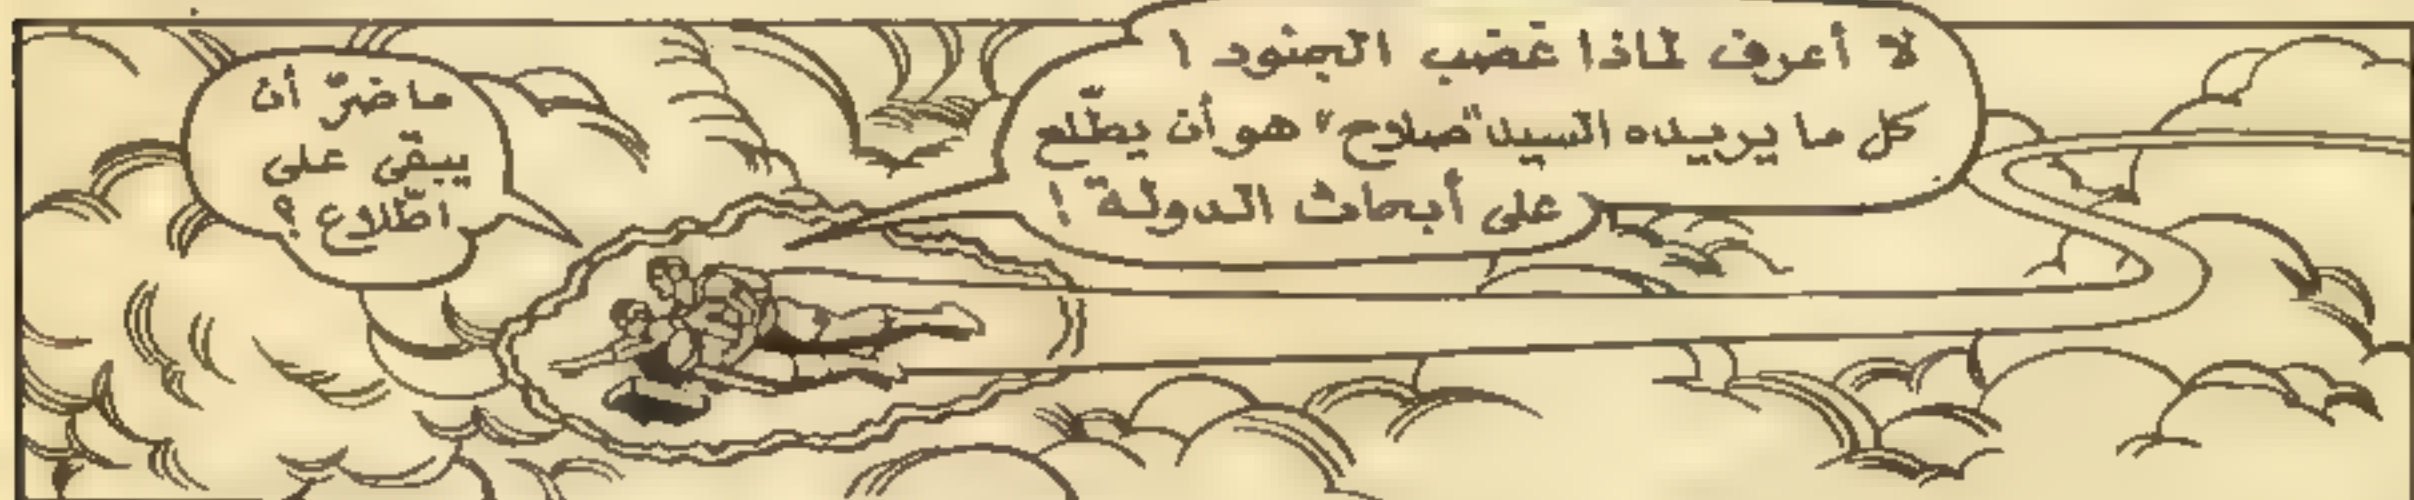 لا أعرف لماذا غضب الجنود !
كل ما يريده السيد "صلاح" هو أن يطّلع
على أبحاث الدولة !
ما ضرّ أن
يبقى على
اطّلاع ؟